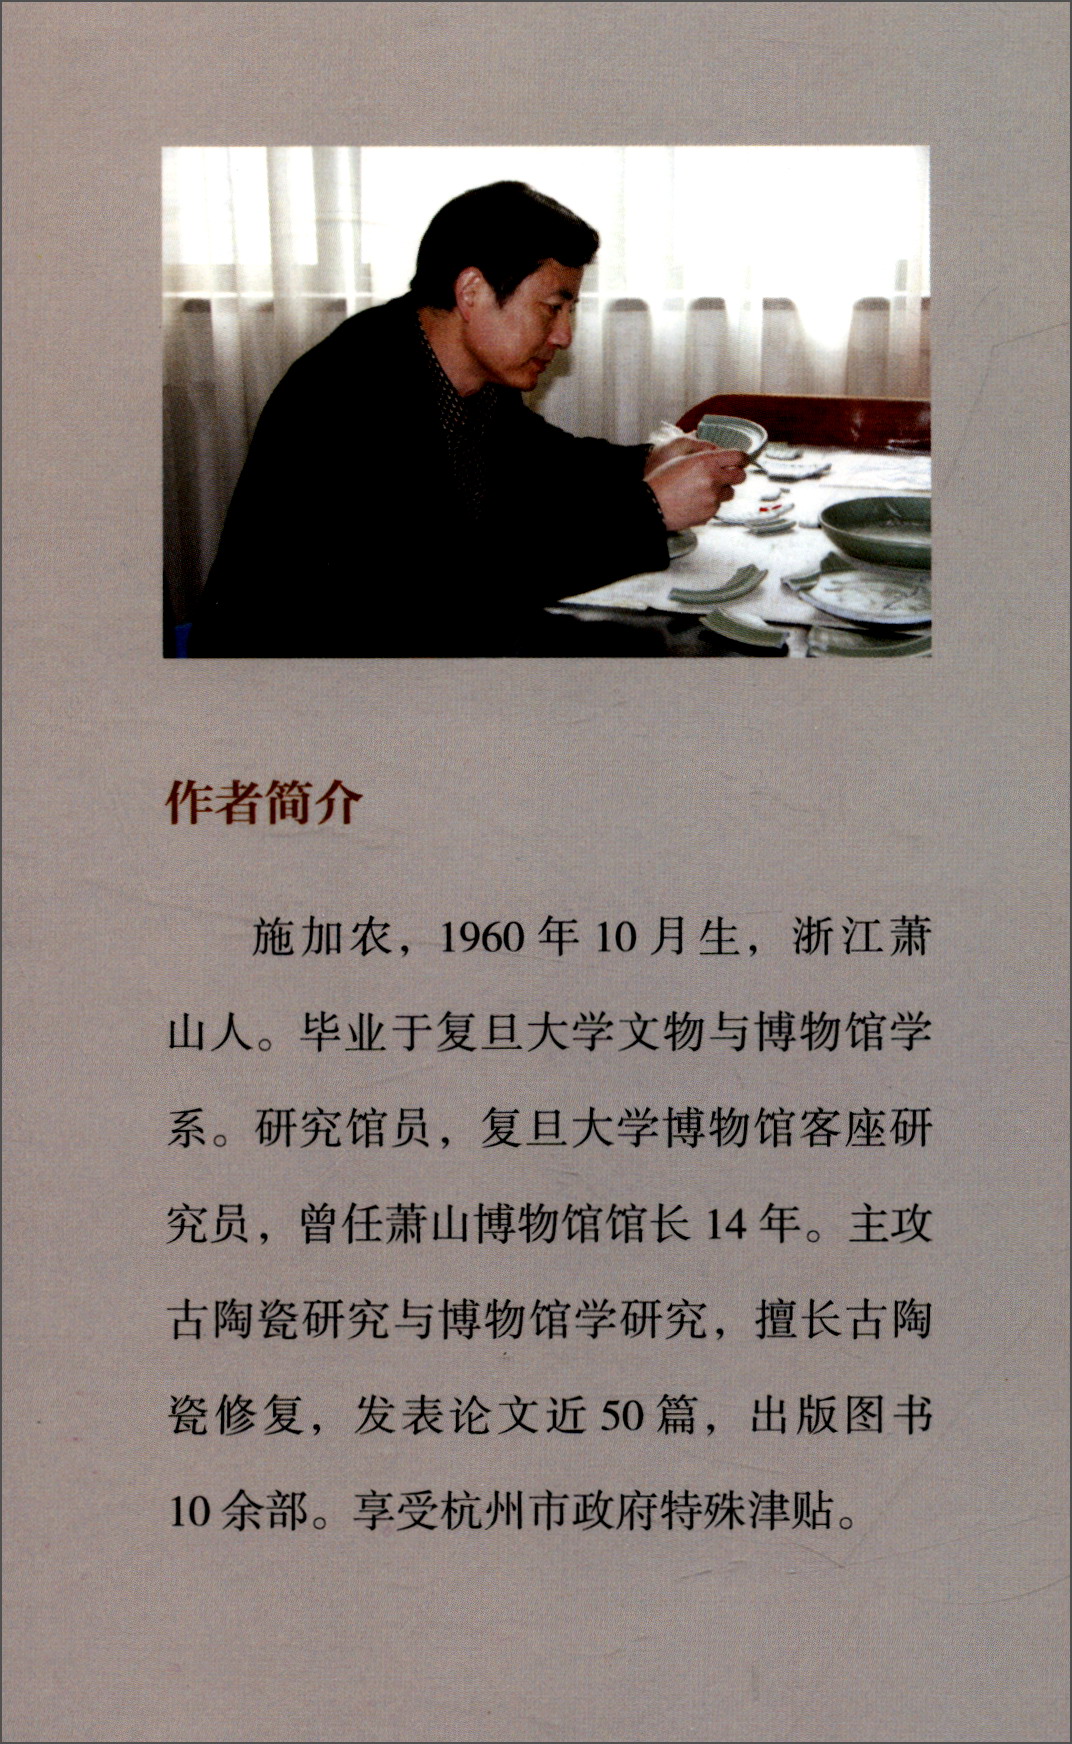 作者简介
施加农，1960 年 10 月生，浙江萧
山人。毕业于复旦大学文物与博物馆学
系。研究馆员，复旦大学博物馆客座研
究员，曾任萧山博物馆馆长 14 年。主攻
古陶瓷研究与博物馆学研究，擅长古陶
瓷修复，发表论文近 50 篇，出版图书
10 余部。享受杭州市政府特殊津贴。